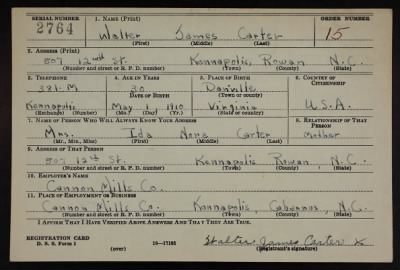 SERIAL NUMBER 1. NAME (Print) ORDER NUMBER
2764 Walter James Carter 15
(First) (Middle) (Last)
2. ADDRESS (Print)
507 12th St. Kannapolis, Rowan N.C.
(Number and street or R. F. D. number) (Town) (County) (State)
3. TELEPHONE 4. AGE IN YEARS 5. PLACE OF BIRTH 6. COUNTRY OF CITIZENSHIP
381-M 30 Danville
DATE OF BIRTH (Town or county)
Kannapolis May 1 1910 Virginia U.S.A.
(Exchange) (Number) (Mo.) (Day) (Yr.) (State or country)
7. NAME OF PERSON WHO WILL ALWAYS KNOW YOUR ADDRESS 8. RELATIONSHIP OF THAT PERSON
Mrs. Ida Nora Carter Mother
(Mr., Mrs., Miss) (First) (Middle) (Last)
9. ADDRESS OF THAT PERSON
507 12th St. Kannapolis Rowan N.C.
(Number and street or R. F. D. number) (Town) (County) (State)
10. EMPLOYER'S NAME
Cannon Mills Co.
11. PLACE OF EMPLOYMENT OR BUSINESS
Cannon Mills Co. Kannapolis, Cabarrus, N.C.
(Number and street or R. F. D. number) (Town) (County) (State)
I AFFIRM THAT I HAVE VERIFIED ABOVE ANSWERS AND THAT THEY ARE TRUE.
REGISTRATION CARD
D. S. S. Form 1 (over) 16—17105 Walter James Carter
(Registrant's signature)